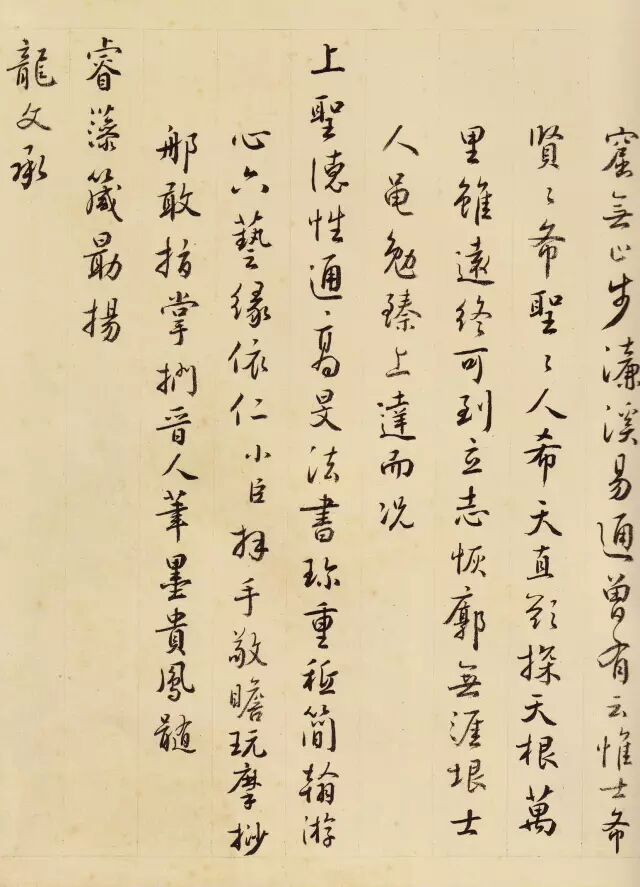 窟無止步濂溪易通曾有云惟士希
賢〻希聖〻人希天直欲探天根萬
里雖遠終可到立志恢廓無涯垠士
人黽勉臻上達而況
上聖德性通〻高旻法書珍重秪簡翰游
心六藝緣依仁小臣拜手敬瞻玩摩挱
那敢指掌捫晉人筆墨貴鳳髓
睿藻箴勗揚
龍文承